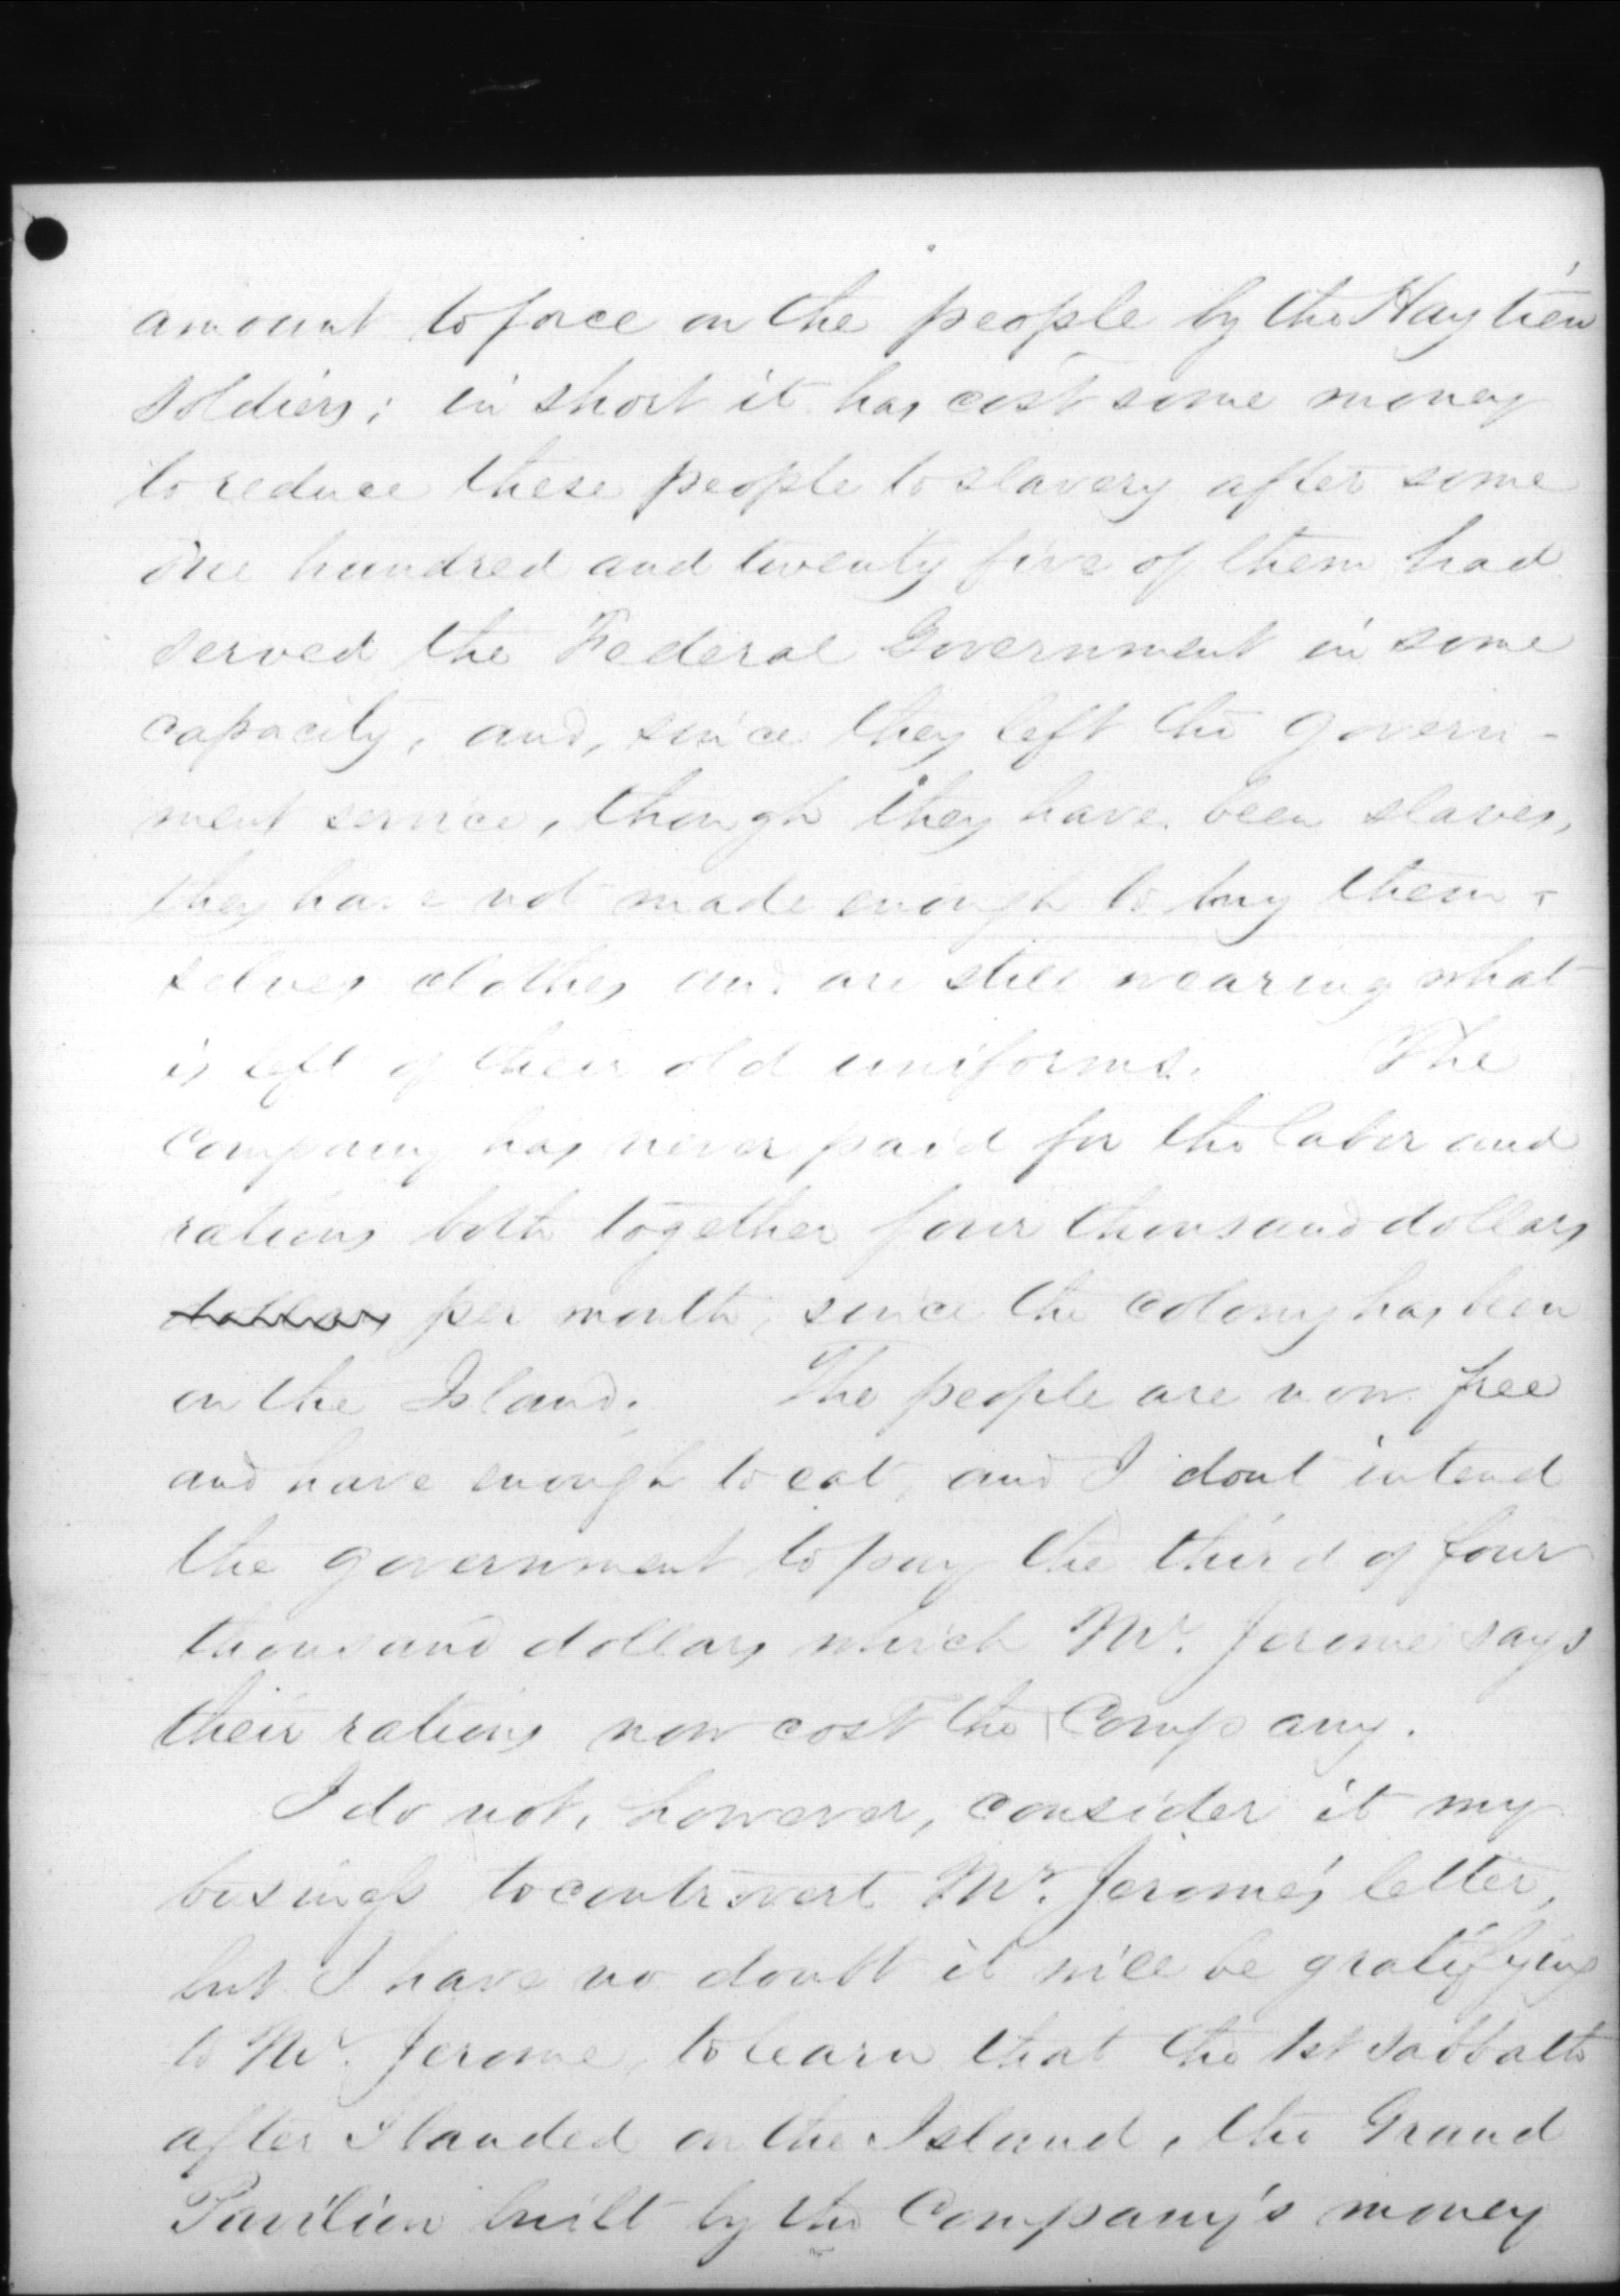 amount to force on the people by the Haytien
soldiers; in short it has cost some money
to reduce these people to slavery after some
one hundred and twenty five of them had
served the Federal Government in some
capacity, and, since they left the govern-
ment service, though they have been slaves,
they have not made enough to buy them-
selves clothes and are still wearing what
is left of their old uniforms. The
Company has never paid for the labor and
rations both together four thousand dollars
dollars per month, since the colony has been
on the Island. The people are now free
and have enough to eat, and I dont intend
the government to pay the third of four
thousand dollars which Mr. Jerome says
their rations now cost the Company.
I do not, however, consider it my
business to controvert Mr. Jerome's letter,
but I have no doubt it will be gratifying
to Mr. Jerome, to learn that the 1st Sabbath
after I landed on the Island, the Grand
Pavilion built by the Company's money